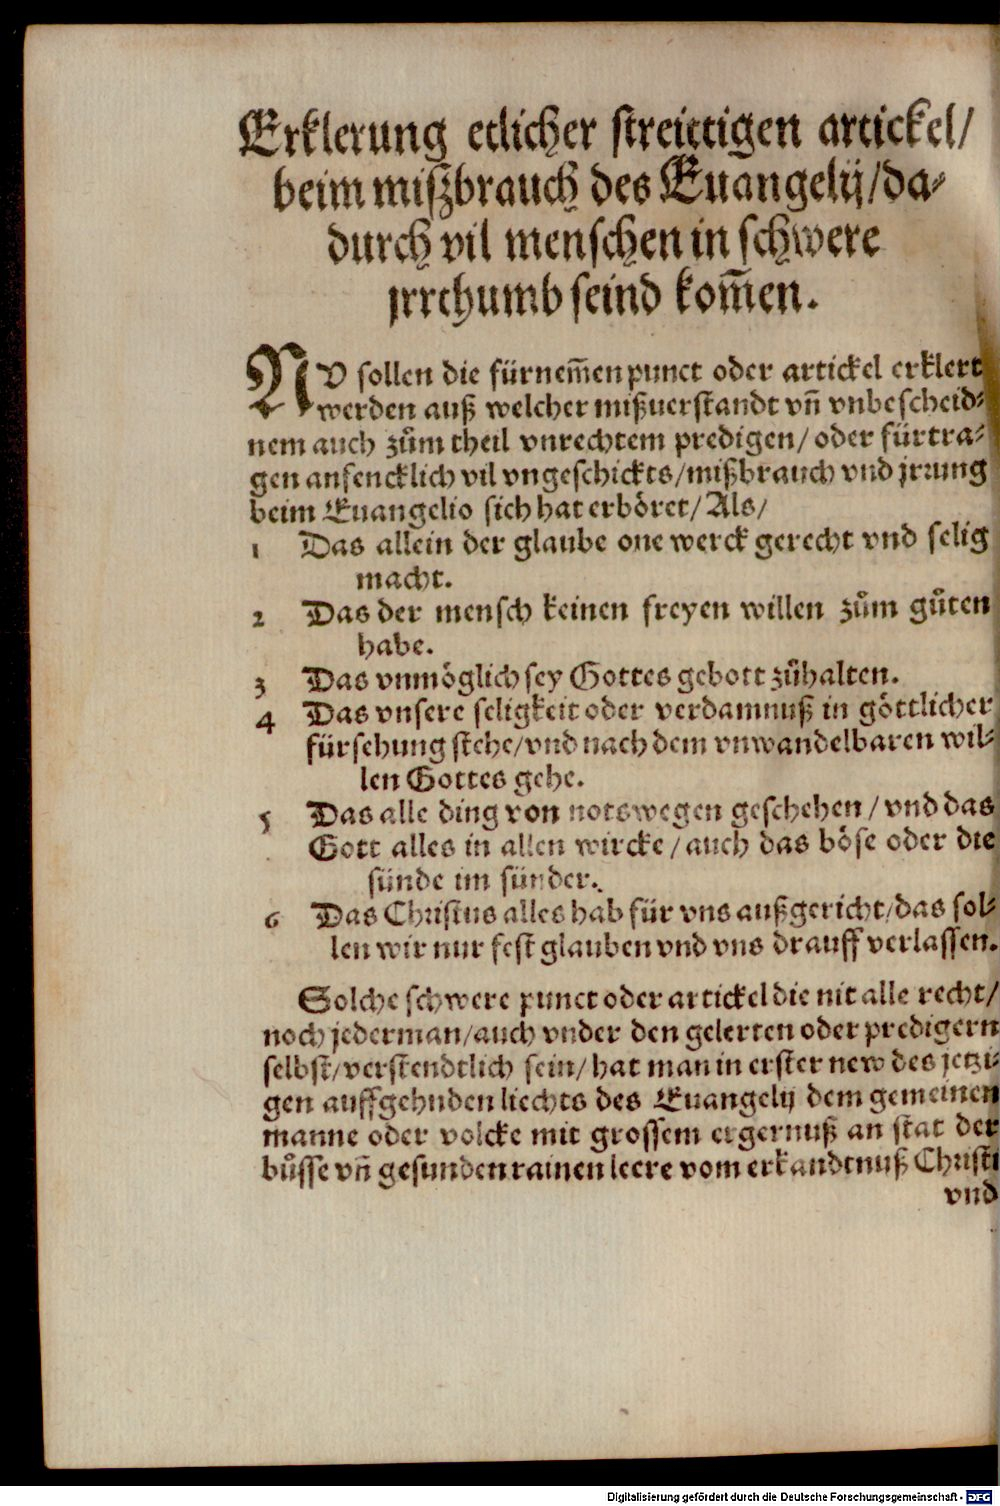 Erklerung etlicher streittigen artickel/
beim miszbrauch des Euangelij/da⸗
durch vil menschen in schwere
jrrthumb seind kom̄en.
NV sollen die fürnem̄en punct oder artickel erklert
werden auß welcher mißuerstandt vn̄ vnbescheid⸗
nem auch zům theil vnrechtem predigen/ oder fürtra⸗
gen anfencklich vil vngeschickts/mißbrauch vnd jrrung
beim Euangelio sich hat erböret/ Als/
1 Das allein der glaube one werck gerecht vnd selig
macht.
2 Das der mensch keinen freyen willen zům gůten
habe.
3 Das vnmöglich sey Gottes gebott zůhalten.
4 Das vnsere seligkeit oder verdamnuß in göttlicher
fürsehung stehe/vnd nach dem vnwandelbaren wil⸗
len Gottes gehe.
5 Das alle ding von notswegen geschehen/ vnd das
Gott alles in allen wircke/ auch das böse oder die
sünde im sünder.
6 Das Christus alles hab für vns außgericht/das sol⸗
len wir nur fest glauben vnd vns drauff verlassen.
Solche schwere punct oder artickel die nit alle recht/
noch jederman/auch vnder den gelerten oder predigern
selbst/verstendtlich sein/ hat man in erster new des jetzi⸗
gen auffgehnden liechts des Euangelij dem gemeinen
manne oder volcke mit grossem ergernuß an stat der
bůsse vn̄ gesunden rainen leere vom erkandtnuß Christi
vnd
Digitalisierung gefördert durch die Deutsche Forschungsgemeinschaft - DFG